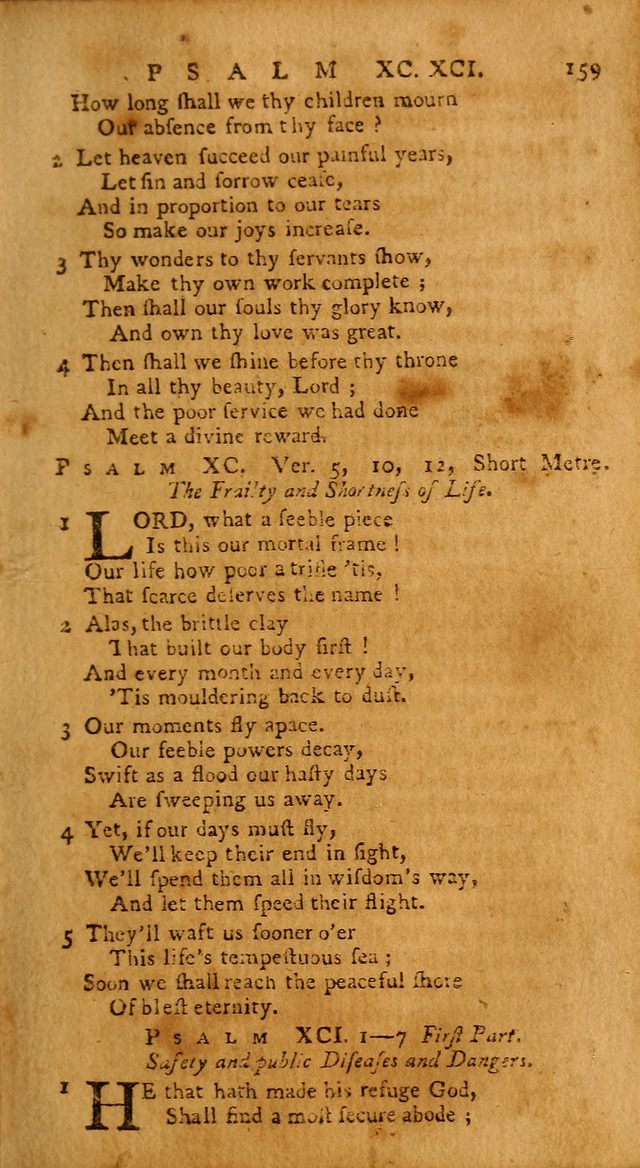 PSALM XC. XCI. 159
How long ſhall we thy children mourn
Our abſence from thy face ?
2 Let heaven ſucceed our painful years,
Let ſin and ſorrow ceaſe,
And in proportion to our tears
So make our joys increaſe.
3 Thy wonders to thy ſervants ſhow,
Make thy own work complete ;
Then ſhall our ſouls thy glory know,
And own thy love was great.
4 Then ſhall we ſhine before thy throne
In all thy beauty, Lord ;
And the poor ſervice we had done
Meet a divine reward.
PSALM XC. Ver. 5, 10, 12, Short Metre.
The Frailty and Shortneſs of Life.
1 LORD, what a feeble piece
Is this our mortal frame !
Our life how poor a trifle 'tis,
That ſcarce deſerves the name !
2 Alas, the brittle clay
That built our body firſt !
And every month and every day,
'Tis mouldering back to duſt.
3 Our moments fly apace.
Our feeble powers decay,
Swift as a flood our haſty days
Are ſweeping us away.
4 Yet, if our days muſt fly,
We'll keep their end in ſight,
We'll ſpend them all in wiſdom's way,
And let them ſpeed their flight.
5 They'll waft us ſooner o'er
This life's tempeſtuous ſea ;
Soon we ſhall reach the peaceful ſhore
Of bleſt eternity.
PSALM XCI. 1—7 Firſt Part.
Safety and public Diſeaſes and Dangers.
1 HE that hath made his refuge God,
Shall find a moſt ſecure abode ;